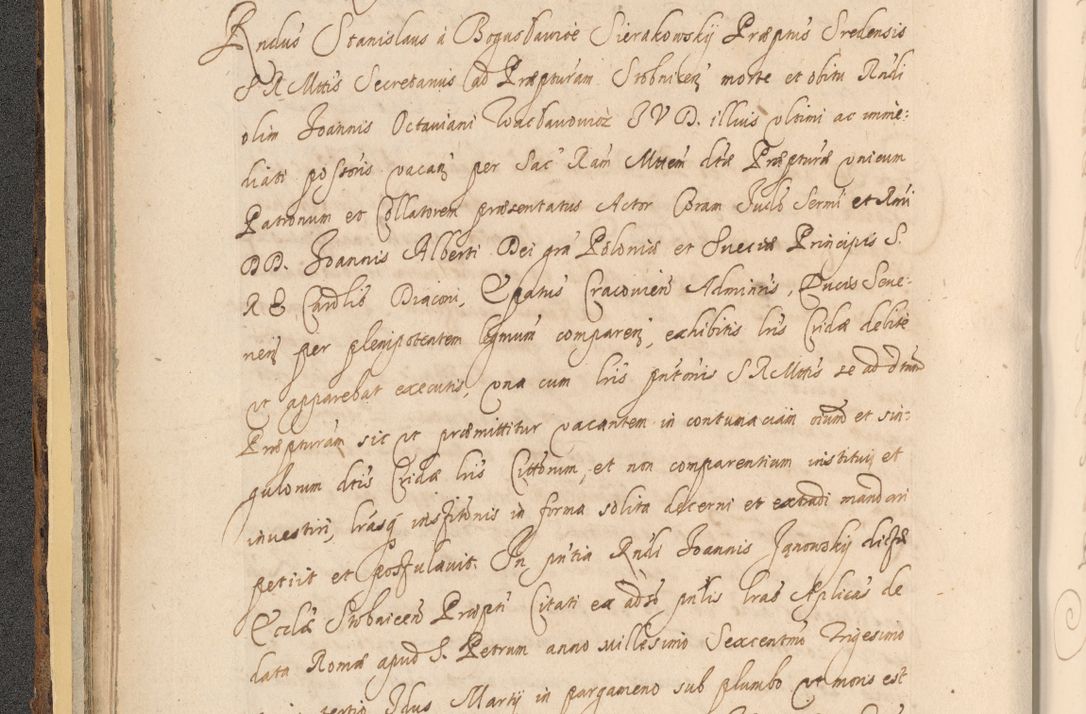 Rndus Stanislaus à Bogusławice Sierakowskÿ Præptus Sredensis
S R Mttis Secretarius ad Præpturam Stobnicen̄ morte et obitu Rndi
olim Joannis Octaviani Wacławowicz J V D. illius ultimi ac imme:
diati possoris vacan̄ per Sac Ram Mttem dtæ Præpturæ unicum
Patronum et Collatorem præsentatus Actor Coram Judō Sermi et Rmi
DD. Joannis Alberti Dei gra Poloniæ et Sueciæ Principis S.
R E Cardlis Diaconi, Epatus Cracovien̄ Adminris, Ducis Seue:
rien̄ per plenipotentem legmum comparen̄, exhibitis lris Cridæ debite
ut apparebat executis, una cum lris pntonis S R Mttis se ad dtam
Præpturam sic ut præmittitur vacantem in contumaciam oium et sin:
gulorum dtis Cridæ lris Cittorum, et non comparentium institui, et
investiri, lrasq institonis in forma solita decerni et extradi mandari
petiit et postulavit. In pntia Rndi Joannis Janowskÿ dictæ
Ecclæ Stobnicen̄ Præpti Citati ex adso pntis lras Aplicas de
data Romæ apud S. Petrum anno millesimo Sexcentmo Trigesimo
tertio Idus Martÿ in pargameno sub plumbo ut moris est